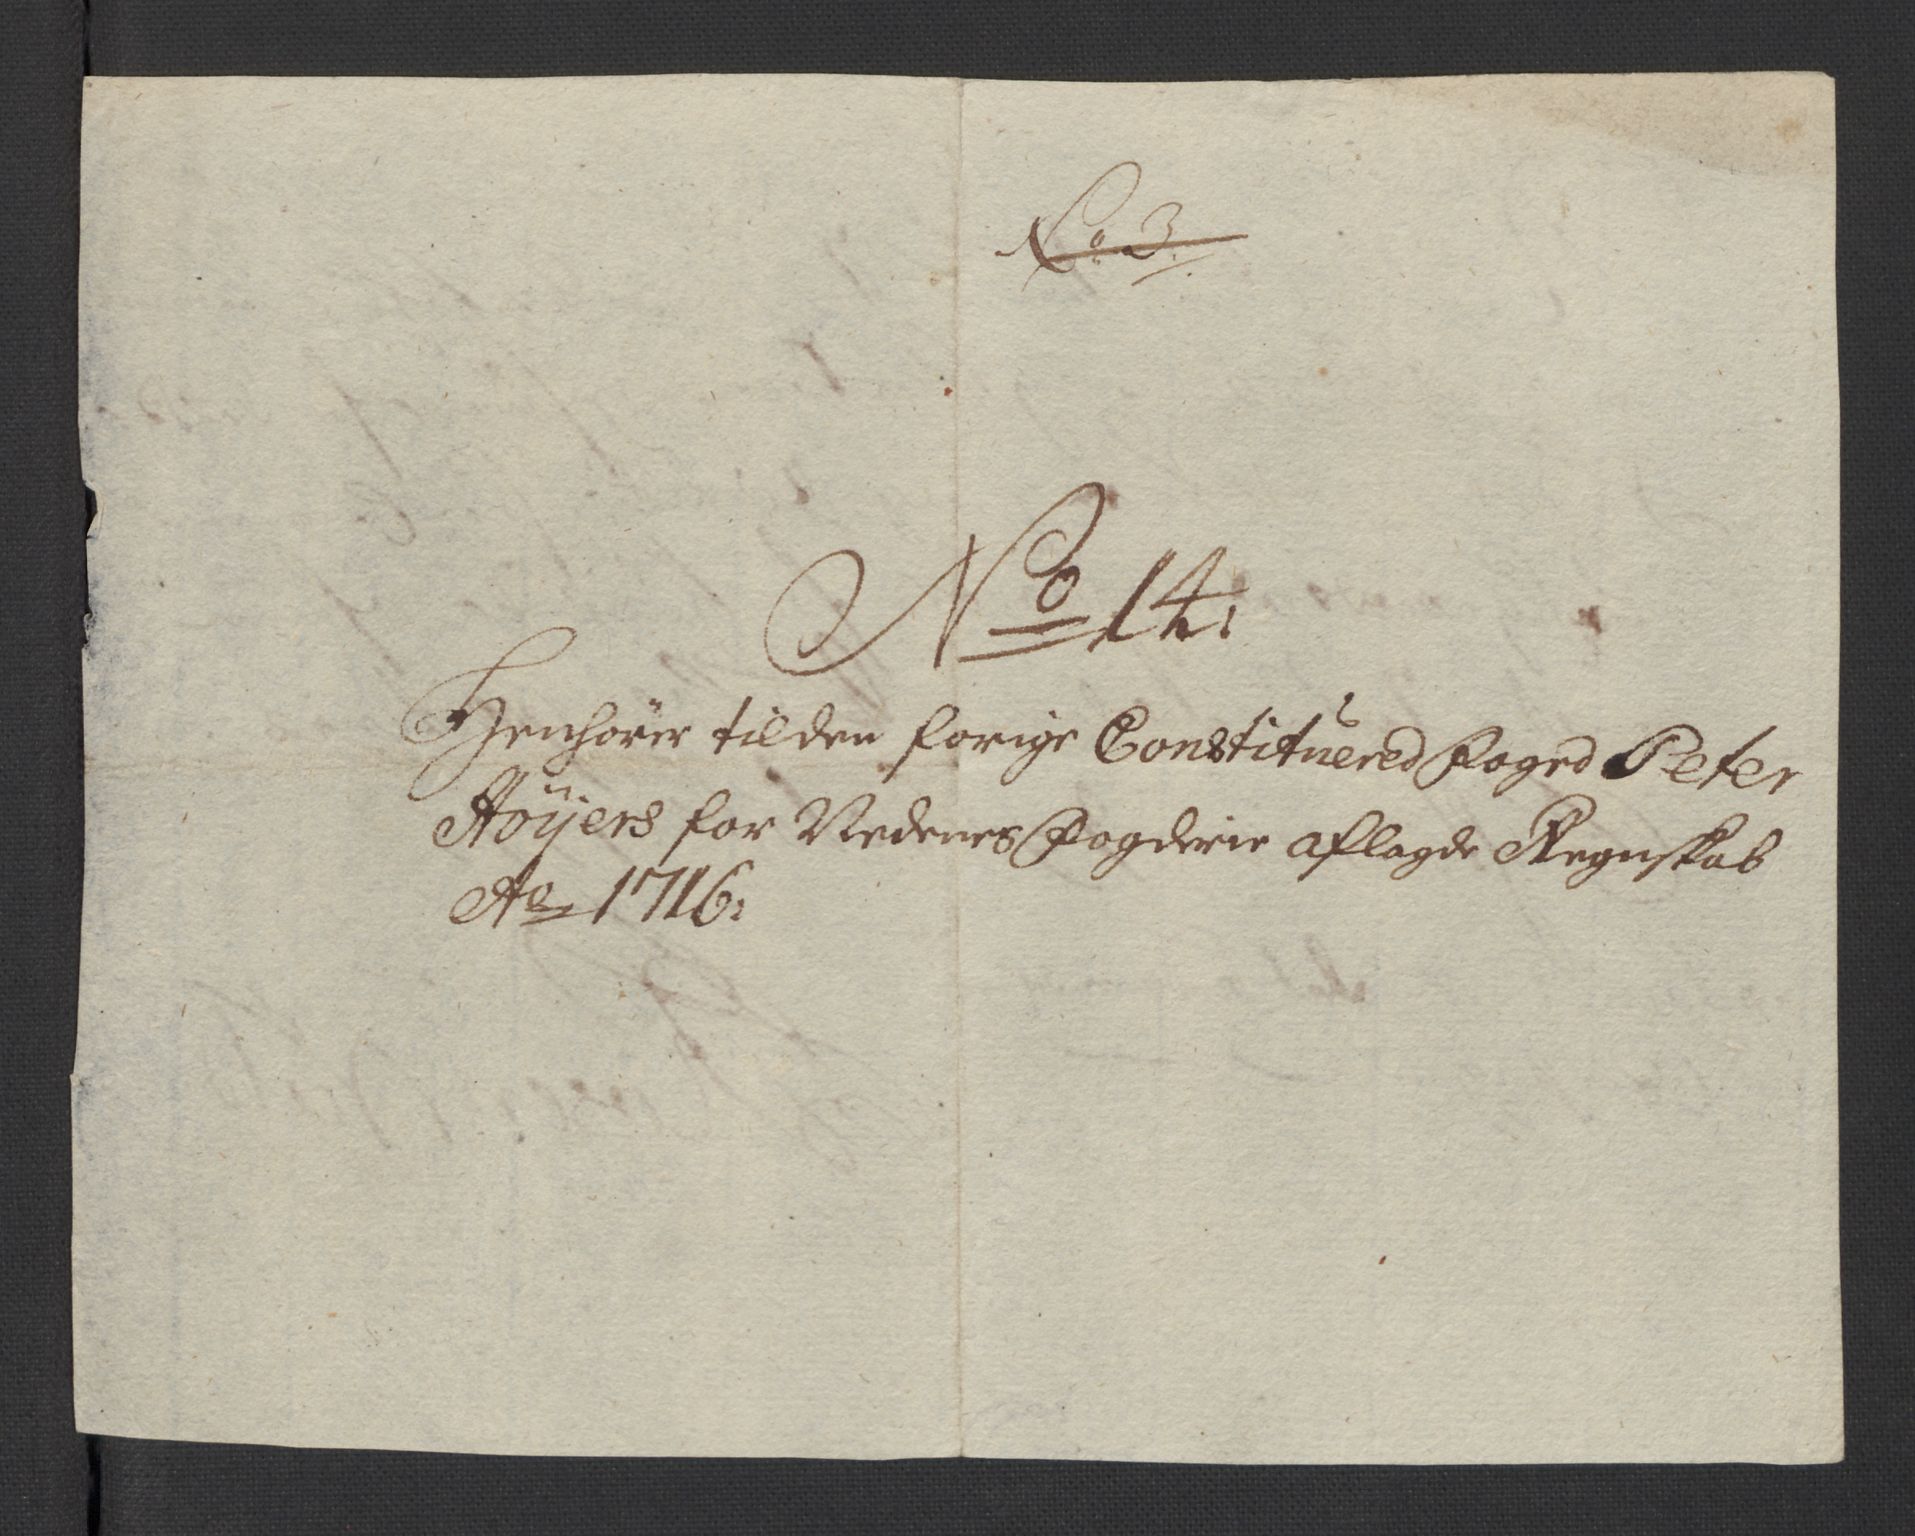 No. 3.
No 14.
Henhörer til den forige Constituered Foged Peter
Höÿers for Nedenes Fogderie aflagde Regnskab
Ao 1716.